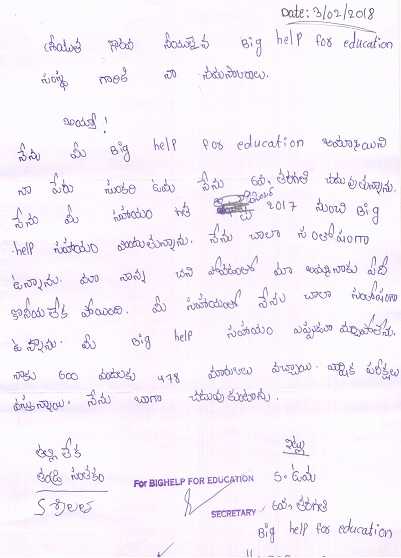 Date: 3/02/2018
శ్రీయుత గౌరవ నీయులైన Big help for education
సంస్థ గారికి నా నమస్కారాలు.
అయ్యా!
నేను మీ Big help for education
నా పేరు సుంకరి ఉమ నేను 6వ తరగతి చదువుతున్నాను.
నేను మీ సహాయం గత 2017 నుంచి Big
help సహాయం పొందుతున్నాను. నేను చాలా సంతోషంగా
ఉన్నాను. మా నాన్న చని పోవడంతో మా
కొనీయ లేక పోయింది. మీ సహాయంతో నేను చాలా సంతోషంగా
ఉన్నాను. మీ Big help సహాయం ఎప్పుటికీ మర్చిపోలేను.
నాకు 600 మార్కులకు 478 మార్కులు వచ్చాయి. వార్షిక పరీక్షలు
వస్తున్నాయి. నేను బాగా చదువుకుంటాను.
తల్లి లేక
తండ్రి సంతకం
ఇట్లు
S. ఉమ
For BIGHELP FOR EDUCATION
SECRETARY
6వ తరగతి
Big help for education